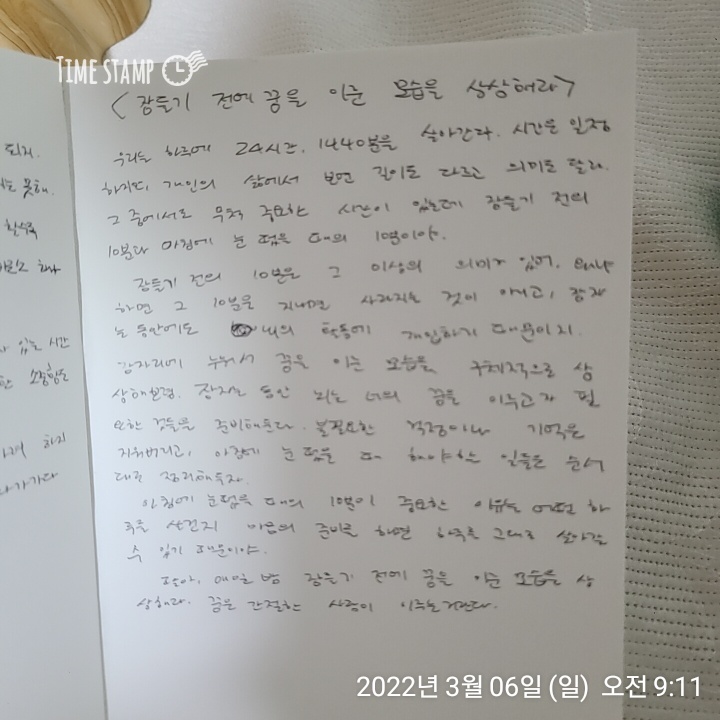 TIME STAMP
<잠들기 전에 꿈을 이룬 모습을 상상해라>
우리는 하루에 24시간, 1440분을 살아간다. 시간은 일정
하지만, 개인의 삶에서 보면 길이도 다르고 의미도 달라.
그 중에서도 무척 중요한 시간이 있는데 잠들기 전의
10분과 아침에 눈 떴을 때의 10분이야.
잠들기 전의 10분은 그 이상의 의미가 있어. 왜냐
하면 그 10분을 지나면 사라지는 것이 아니고, 잠자
는 동안에도 뇌의 활동에 개입하기 때문이지.
잠자리에 누워서 꿈을 이룬 모습을 구체적으로 상
상해보렴. 잠자는 동안 뇌는 너의 꿈을 이루고자 필
요한 것들을 준비해준다. 불필요한 걱정이나 기억은
지워버리고, 아침에 눈 떴을 때 해야하는 일들은 순서
대로 정리해두자.
아침에 눈떴을 때의 10분이 중요한 이유는 어떤 하
루를 살건지 마음의 준비를 하면 하루를 그대로 살아갈
수 있기 때문이야.
딸아, 매일 밤 잠들기 전에 꿈을 이룬 모습을 상
상해라. 꿈은 간절한 사람이 이루는거란다.
되지.
못해.
있는 시간
하지
2022년 3월 06일 (일) 오전 9:11